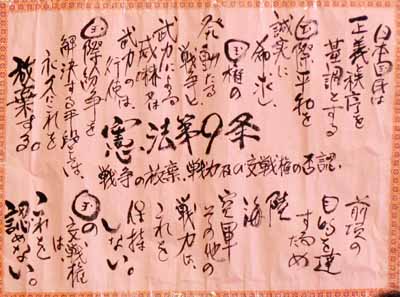 憲法第9条
戦争の放棄、戦力及び交戦権の否認.
日本国民は
正義秩序を
基調とする
国際平和を
誠実に
希求し、
国権の
発動たる
戦争と、
武力による
威嚇又は
武力の行使は、
国際紛争を
解決する手段としては、
永久にこれを
放棄する。
前項の
目的を達
するため
陸
海
空軍
その他の
戦力は、
これを
保持
しない。
国の
交戦権
は、
これを
認めない。